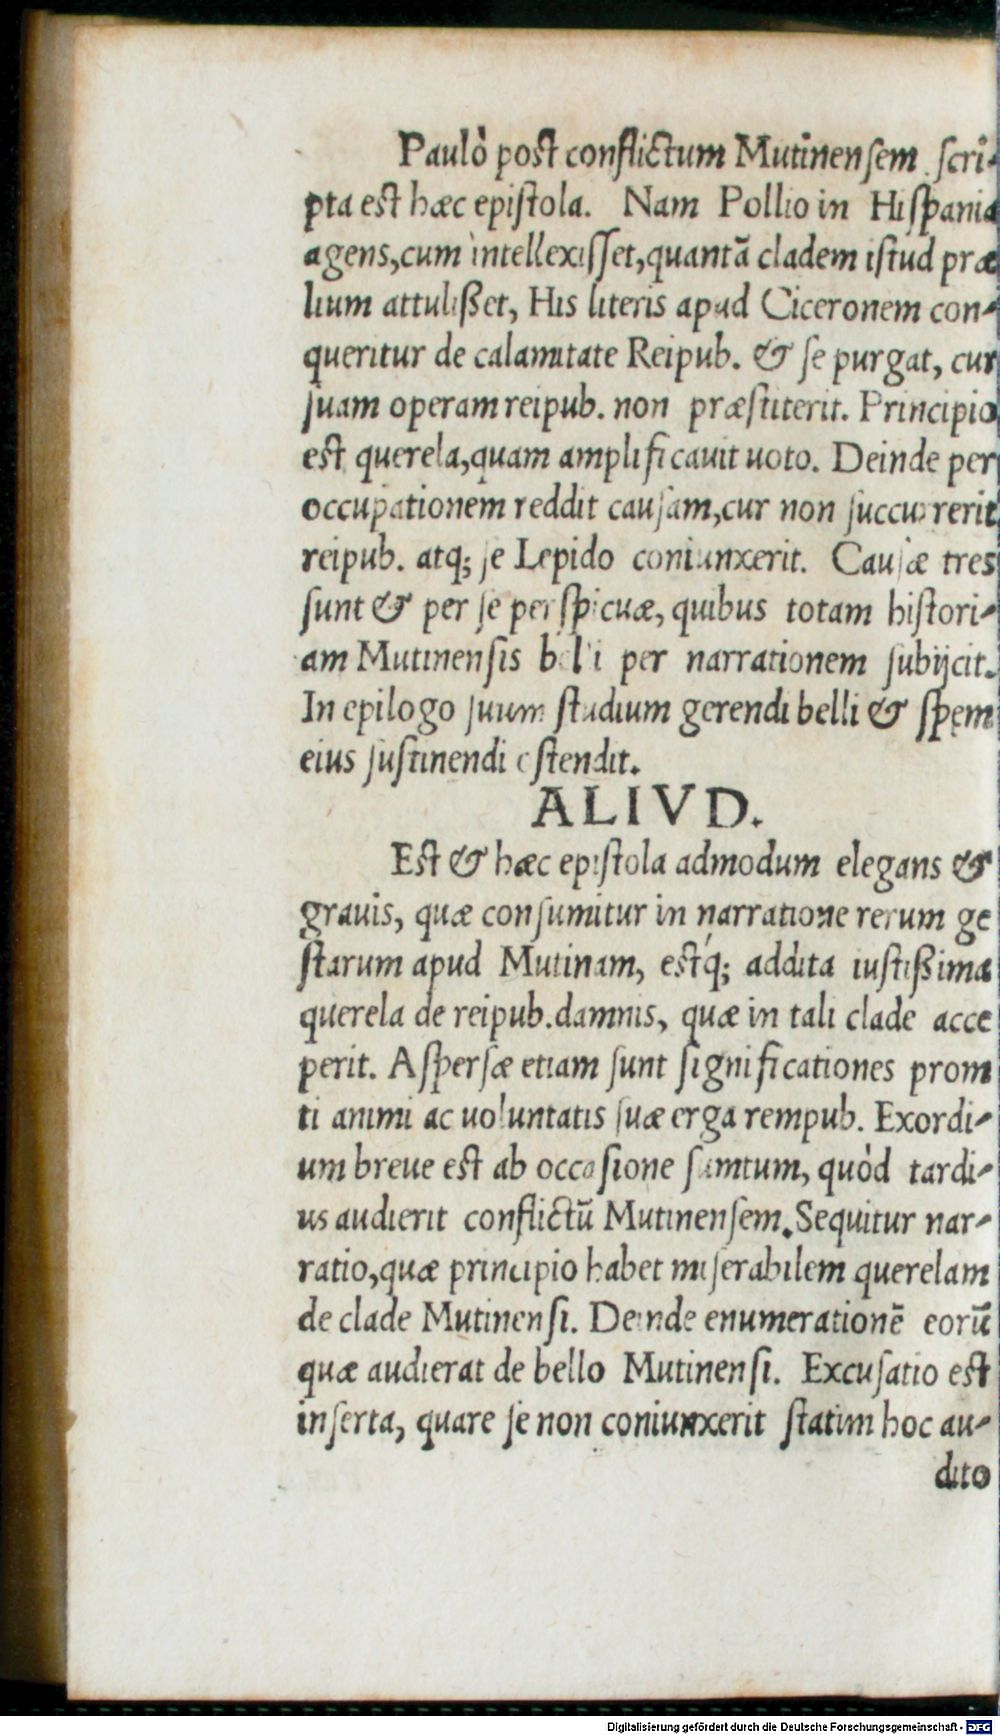 Paulò post conflictum Mutinensem scri-
pta est hæc epistola. Nam Pollio in Hispania
agens, cum intellexisset, quantā cladem istud præ
lium attulißet, His literis apud Ciceronem con-
queritur de calamitate Reipub. & se purgat, cur
suam operam reipub. non præstiterit. Principio
est querela, quam amplificauit uoto. Deinde per
occupationem reddit causam, cur non succurrerit
reipub. atq; se Lepido coniunxerit. Causæ tres
sunt & per se perspicuæ, quibus totam histori-
am Mutinensis belli per narrationem subijcit.
In epilogo suum studium gerendi belli & spem
eius sustinendi ostendit.
ALIVD.
Est & hæc epistola admodum elegans &
grauis, quæ consumitur in narratione rerum ge
starum apud Mutinam, estq́; addita iustißima
querela de reipub. damnis, quæ in tali clade acce
perit. Aspersæ etiam sunt significationes prom
ti animi ac uoluntatis suæ erga rempub. Exordi-
um breue est ab occasione sumtum, quòd tardi-
us audierit conflictū Mutinensem. Sequitur nar-
ratio, quæ principio habet miserabilem querelam
de clade Mutinensi. Deinde enumerationē eorū
quæ audierat de bello Mutinensi. Excusatio est
inserta, quare se non coniunxerit statim hoc au-
dito
Digitalisierung gefördert durch die Deutsche Forschungsgemeinschaft - DFG